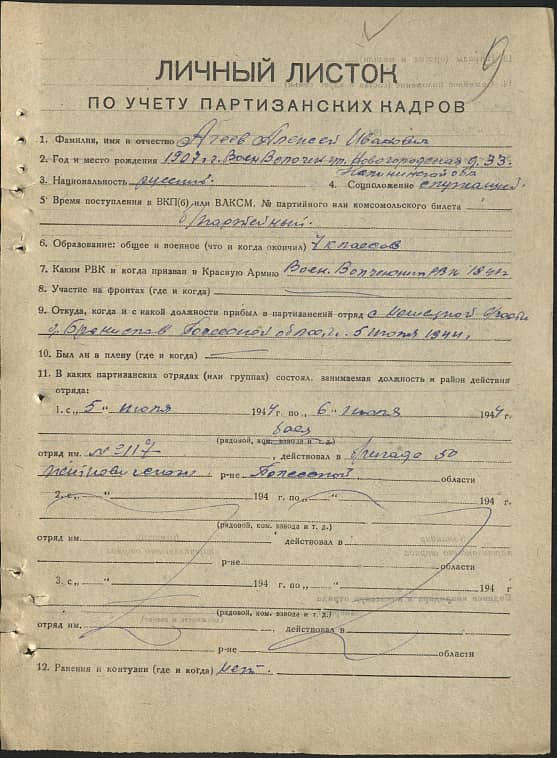 9
ЛИЧНЫЙ ЛИСТОК
ПО УЧЕТУ ПАРТИЗАНСКИХ КАДРОВ
1. Фамилия, имя и отчество Агеев Алексей Иванович
2. Год и место рождения 1907 г. Новогородская д. 33.
Калининской обл
3. Национальность русский. 4. Соцположение служащий.
5 Время поступления в ВКП(б) или ВЛКСМ, № партийного или комсомольского билета
б/партейный.
6. Образование: общее и военное (что и когда окончил) 4 классов
7. Каким РВК и когда призван в Красную Армию РВК 1941г
8. Участие на фронтах (где и когда)
9. Откуда, когда и с какой должности прибыл в партизанский отряд с немецкой
д. Полесской области. 5 июля 1944г.
10. Был ли в плену (где и когда)
11. В каких партизанских отрядах (или группах) состоял, занимаемая должность и район действия
отряда:
1. с „ 5 “ июля 1944 г. по „ 6 “ июля 1944 г.
боец
(рядовой, ком. взвода и т. д.)
отряд им. № 117 , действовал в бригада 50
р-не Полесской области
2. с „ “ 194 г. по „ “ 194 г.
(рядовой, ком. взвода и т. д.)
отряд им. , действовал в
р-не области
3. с „ “ 194 г. по „ “ 194 г.
(рядовой, ком. взвода и т. д.)
отряд им. , действовал в
р-не области
12. Ранения и контузии (где и когда) нет.